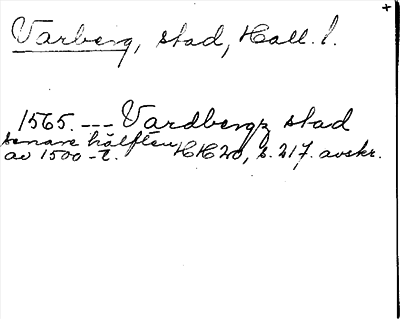 +
Varberg, stad, Hall. l.
1565. --- Vardbergz stad
senare hälften
av 1500-t. HH 20, s. 217. avskr.